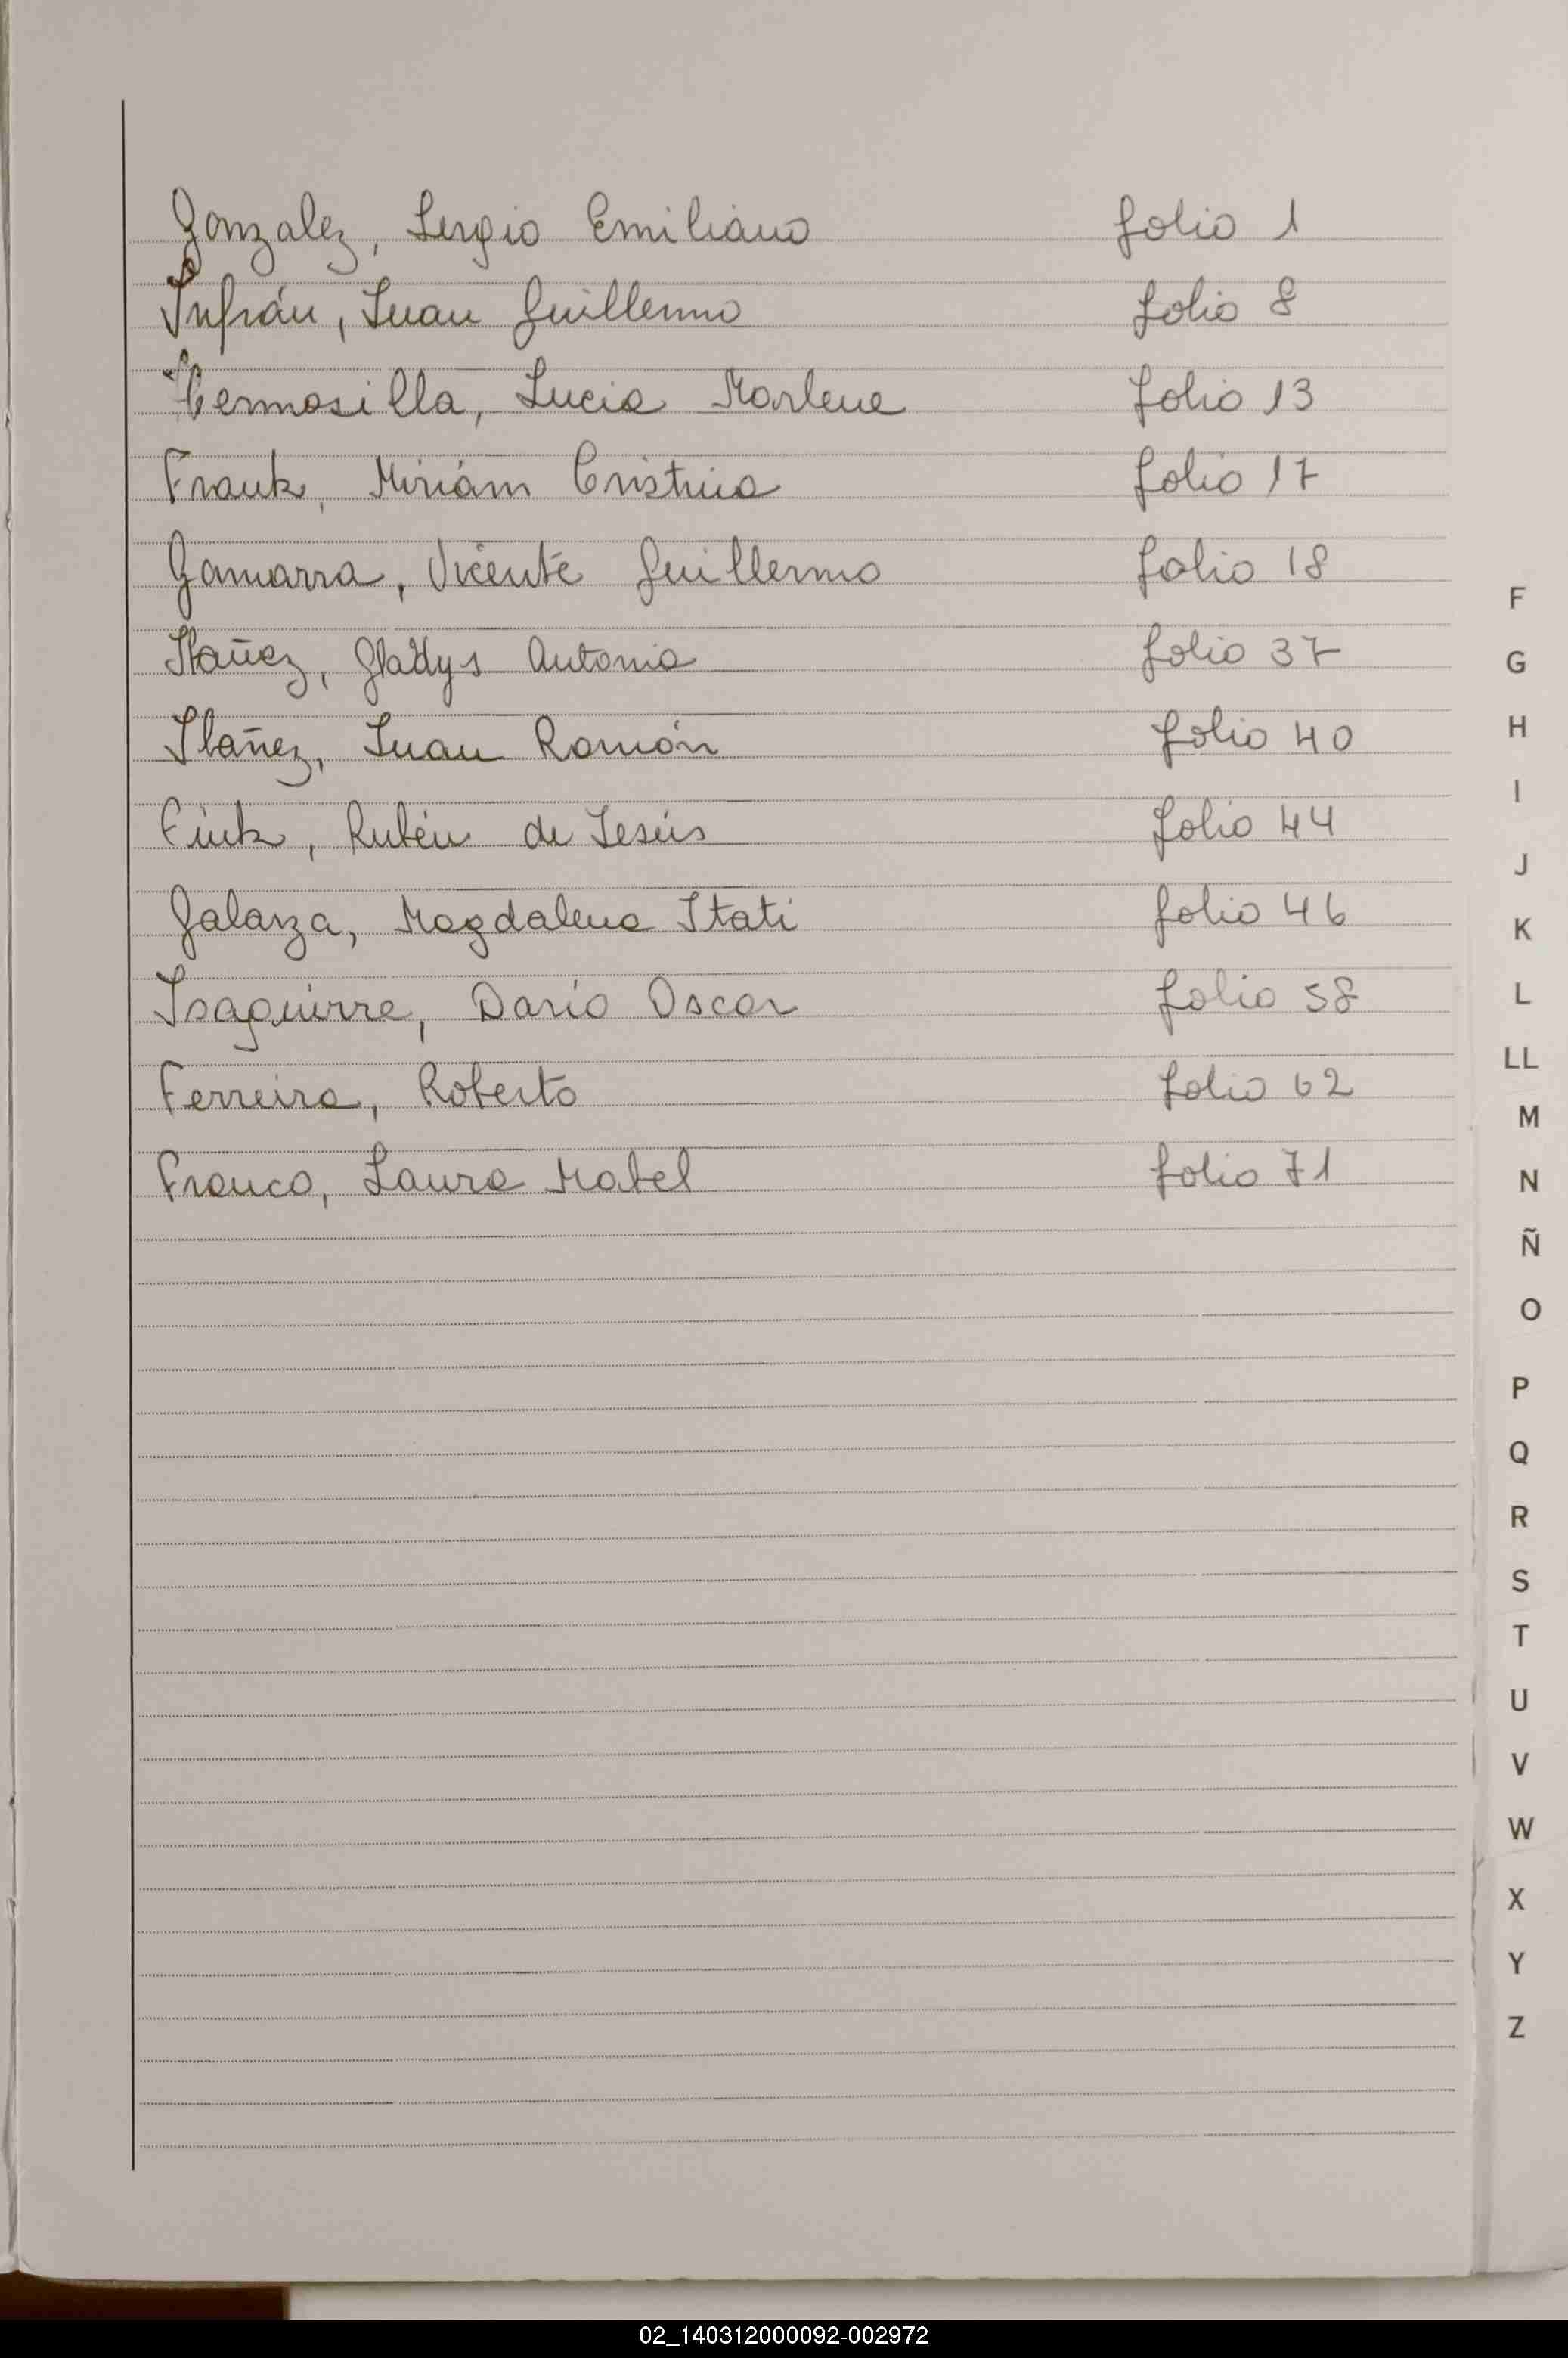 Gonzalez, Sergio Emiliano folio 1
Infrán, Juan Guillermo folio 8
Hermosilla, Lucia Marlene folio 13
Frank, Miriám Cristina folio 17
Gamarra, Vicente Guillermo folio 18
Ibañez, Gladys Antonia folio 37
Ibañez, Juan Ramón folio 40
Fink, Rubén de Jesús folio 44
Galarza, Magdalena Itati folio 46
Isaguirre, Dario Oscar folio 58
Ferreira, Roberto folio 62
Franco, Laura Mabel folio 71
F
G
H
I
J
K
L
LL
M
N
Ñ
O
P
Q
R
S
T
U
V
W
X
Y
Z
02_140312000092-002972